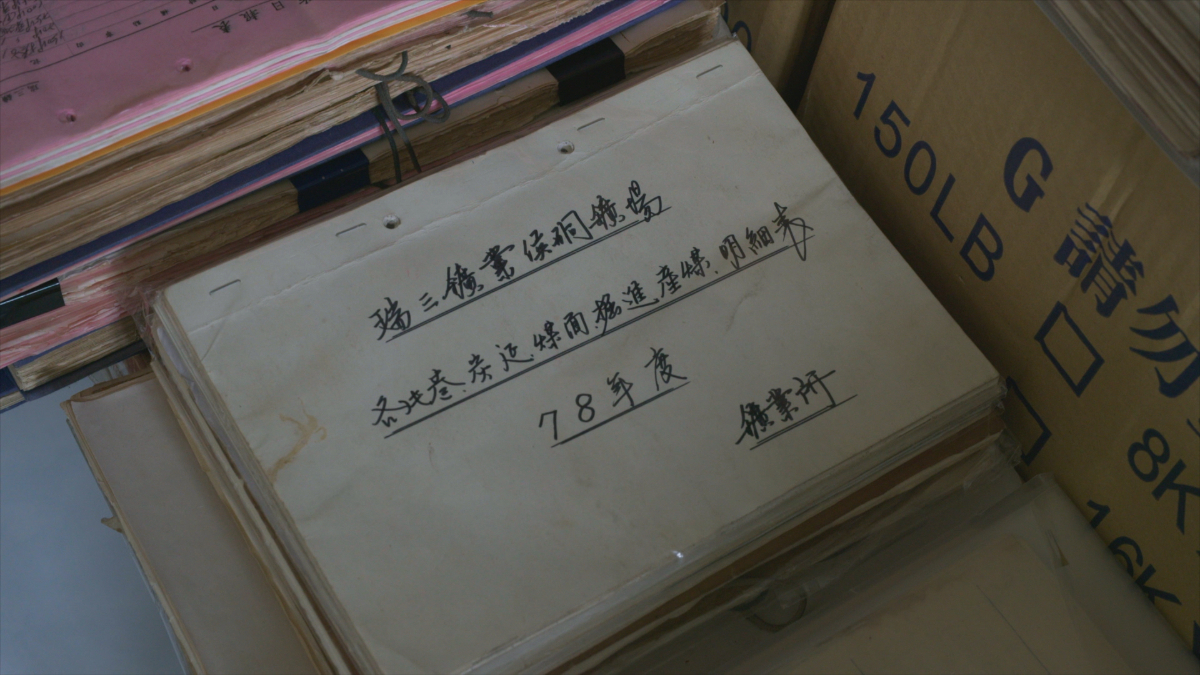 日報表
瑞三鑛業侯硐鑛場
各坑巷.炭延.煤面.掘進產煤.明細表
78年度
鑛業所
150LB
G 請勿
8K
16K